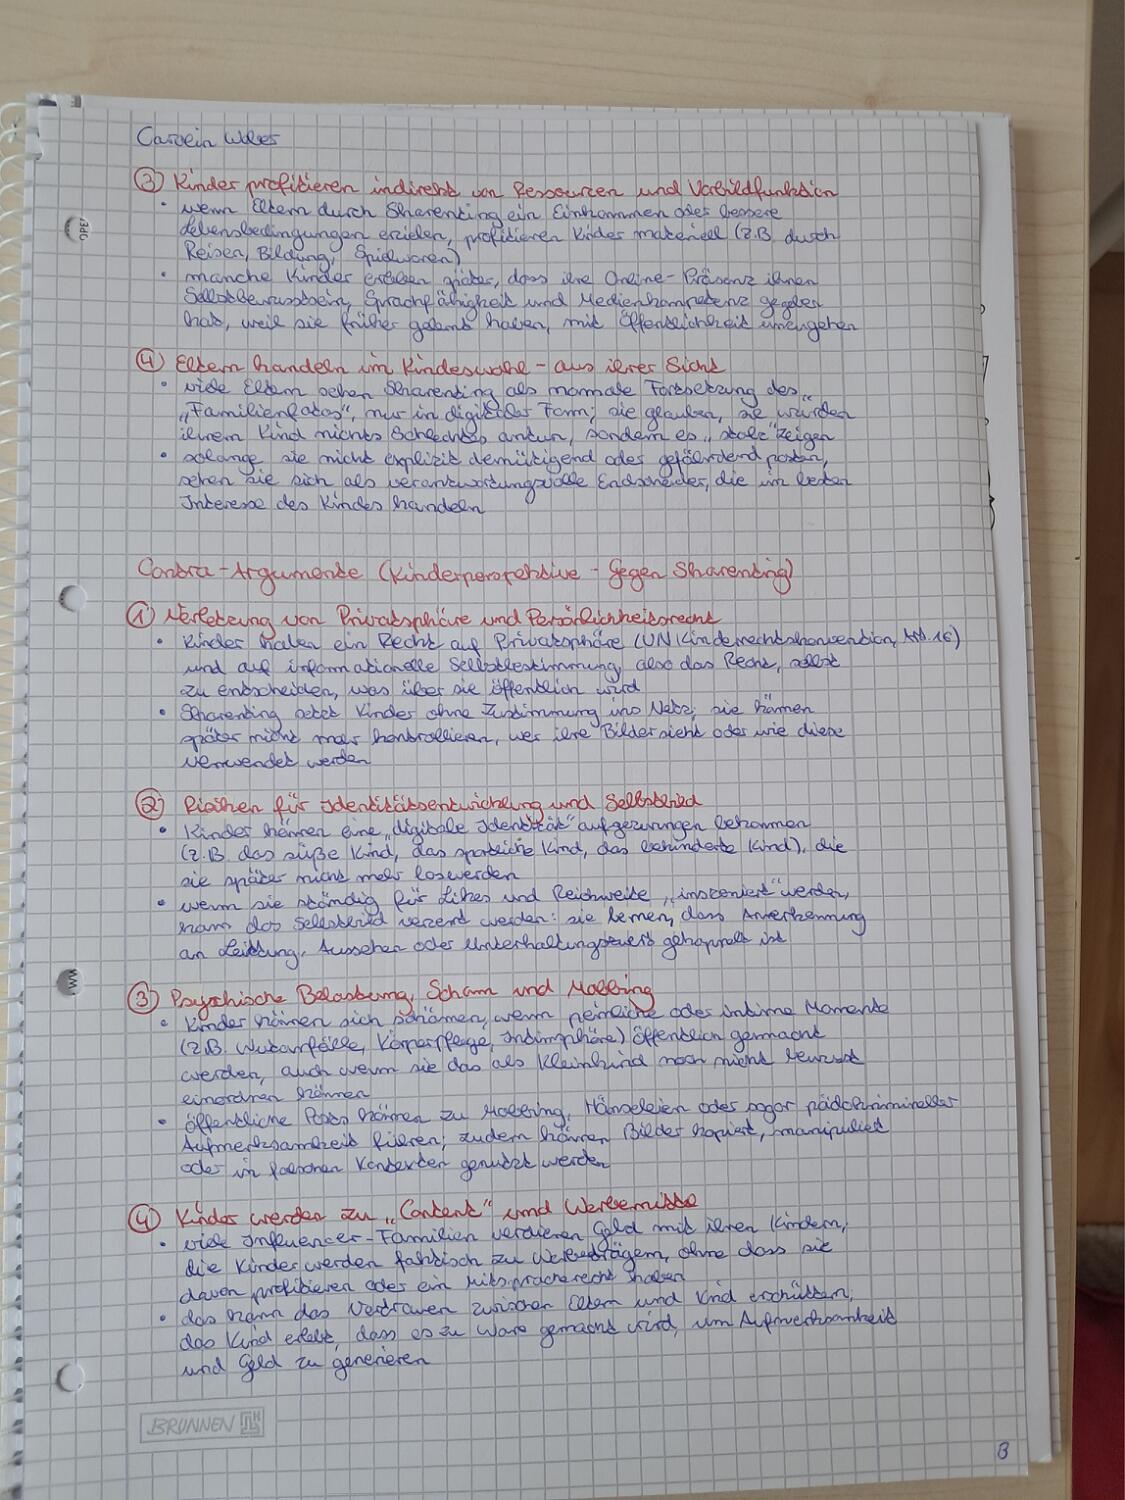 ③ Kinder profitieren indirekt von Ressourcen und Vorbildfunktion
• wenn Eltern durch Sharenting ein Einkommen oder bessere
Lebensbedingungen erzielen, profitieren Kinder materiell (z.B. durch
Reisen, Bildung, Spielwaren)
• manche Kinder erleben später, dass ihre Online-Präsenz ihnen
Selbstbewusstsein, Sprachfähigkeit und Medienkompetenz gegeben
hat, weil sie früher gelernt haben, mit Öffentlichkeit umzugehen
④ Eltern handeln im Kindeswohl - aus ihrer Sicht
• viele Eltern sehen Sharenting als normale Fortsetzung des „
„Familienfotos“, nur in digitaler Form; sie glauben, sie würden
ihrem Kind nichts Schlechtes antun, sondern es „stolz“ zeigen
• solange sie nicht explizit demütigend oder gefährdend posten,
sehen sie sich als verantwortungsvolle Entscheider, die im besten
Interesse des Kindes handeln
Contra-Argumente (Kinderperspektive - Gegen Sharenting)
① Verletzung von Privatsphäre und Persönlichkeitsrecht
• Kinder haben ein Recht auf Privatsphäre (UN Kinderrechtskonvention, Art. 16)
und auf informationelle Selbstbestimmung, also das Recht, selbst
zu entscheiden, was über sie öffentlich wird
• Sharenting setzt Kinder ohne Zustimmung ins Netz; sie können
später nicht mehr kontrollieren, wer ihre Bilder sieht oder wie diese
verwendet werden
② Risiken für Identitätsentwicklung und Selbstbild
• Kinder können eine „digitale Identität“ aufgezwungen bekommen
(z.B. das süße Kind, das sportliche Kind, das behinderte Kind), die
sie später nicht mehr loswerden
• wenn sie ständig für Likes und Reichweite „inszeniert“ werden,
kann das Selbstbild verzerrt werden: sie lernen, dass Anerkennung
an Leistung, Aussehen oder Unterhaltungswert gekoppelt ist
③ Psychische Belastung, Scham und Mobbing
• Kinder können sich schämen, wenn peinliche oder intime Momente
(z.B. Wutanfälle, Körperpflege, Intimsphäre) öffentlich gemacht
werden, auch wenn sie das als Kleinkind noch nicht bewusst
einordnen können
• öffentliche Posts können zu Mobbing, Hänseleien oder sogar pädokrimineller
Aufmerksamkeit führen; zudem können Bilder kopiert, manipuliert
oder in falschen Kontexten genutzt werden
④ Kinder werden zu „Content“ und Werbe
• viele Influencer-Familien verdienen Geld mit ihren Kindern,
die Kinder werden faktisch zu Werbeträgern, ohne dass sie
davon profitieren oder ein Mitspracherecht haben
• das kann das Vertrauen zwischen Eltern und Kind erschüttern;
das Kind erlebt, dass es zu Ware gemacht wird, um Aufmerksamkeit
und Geld zu generieren
BRUNNEN